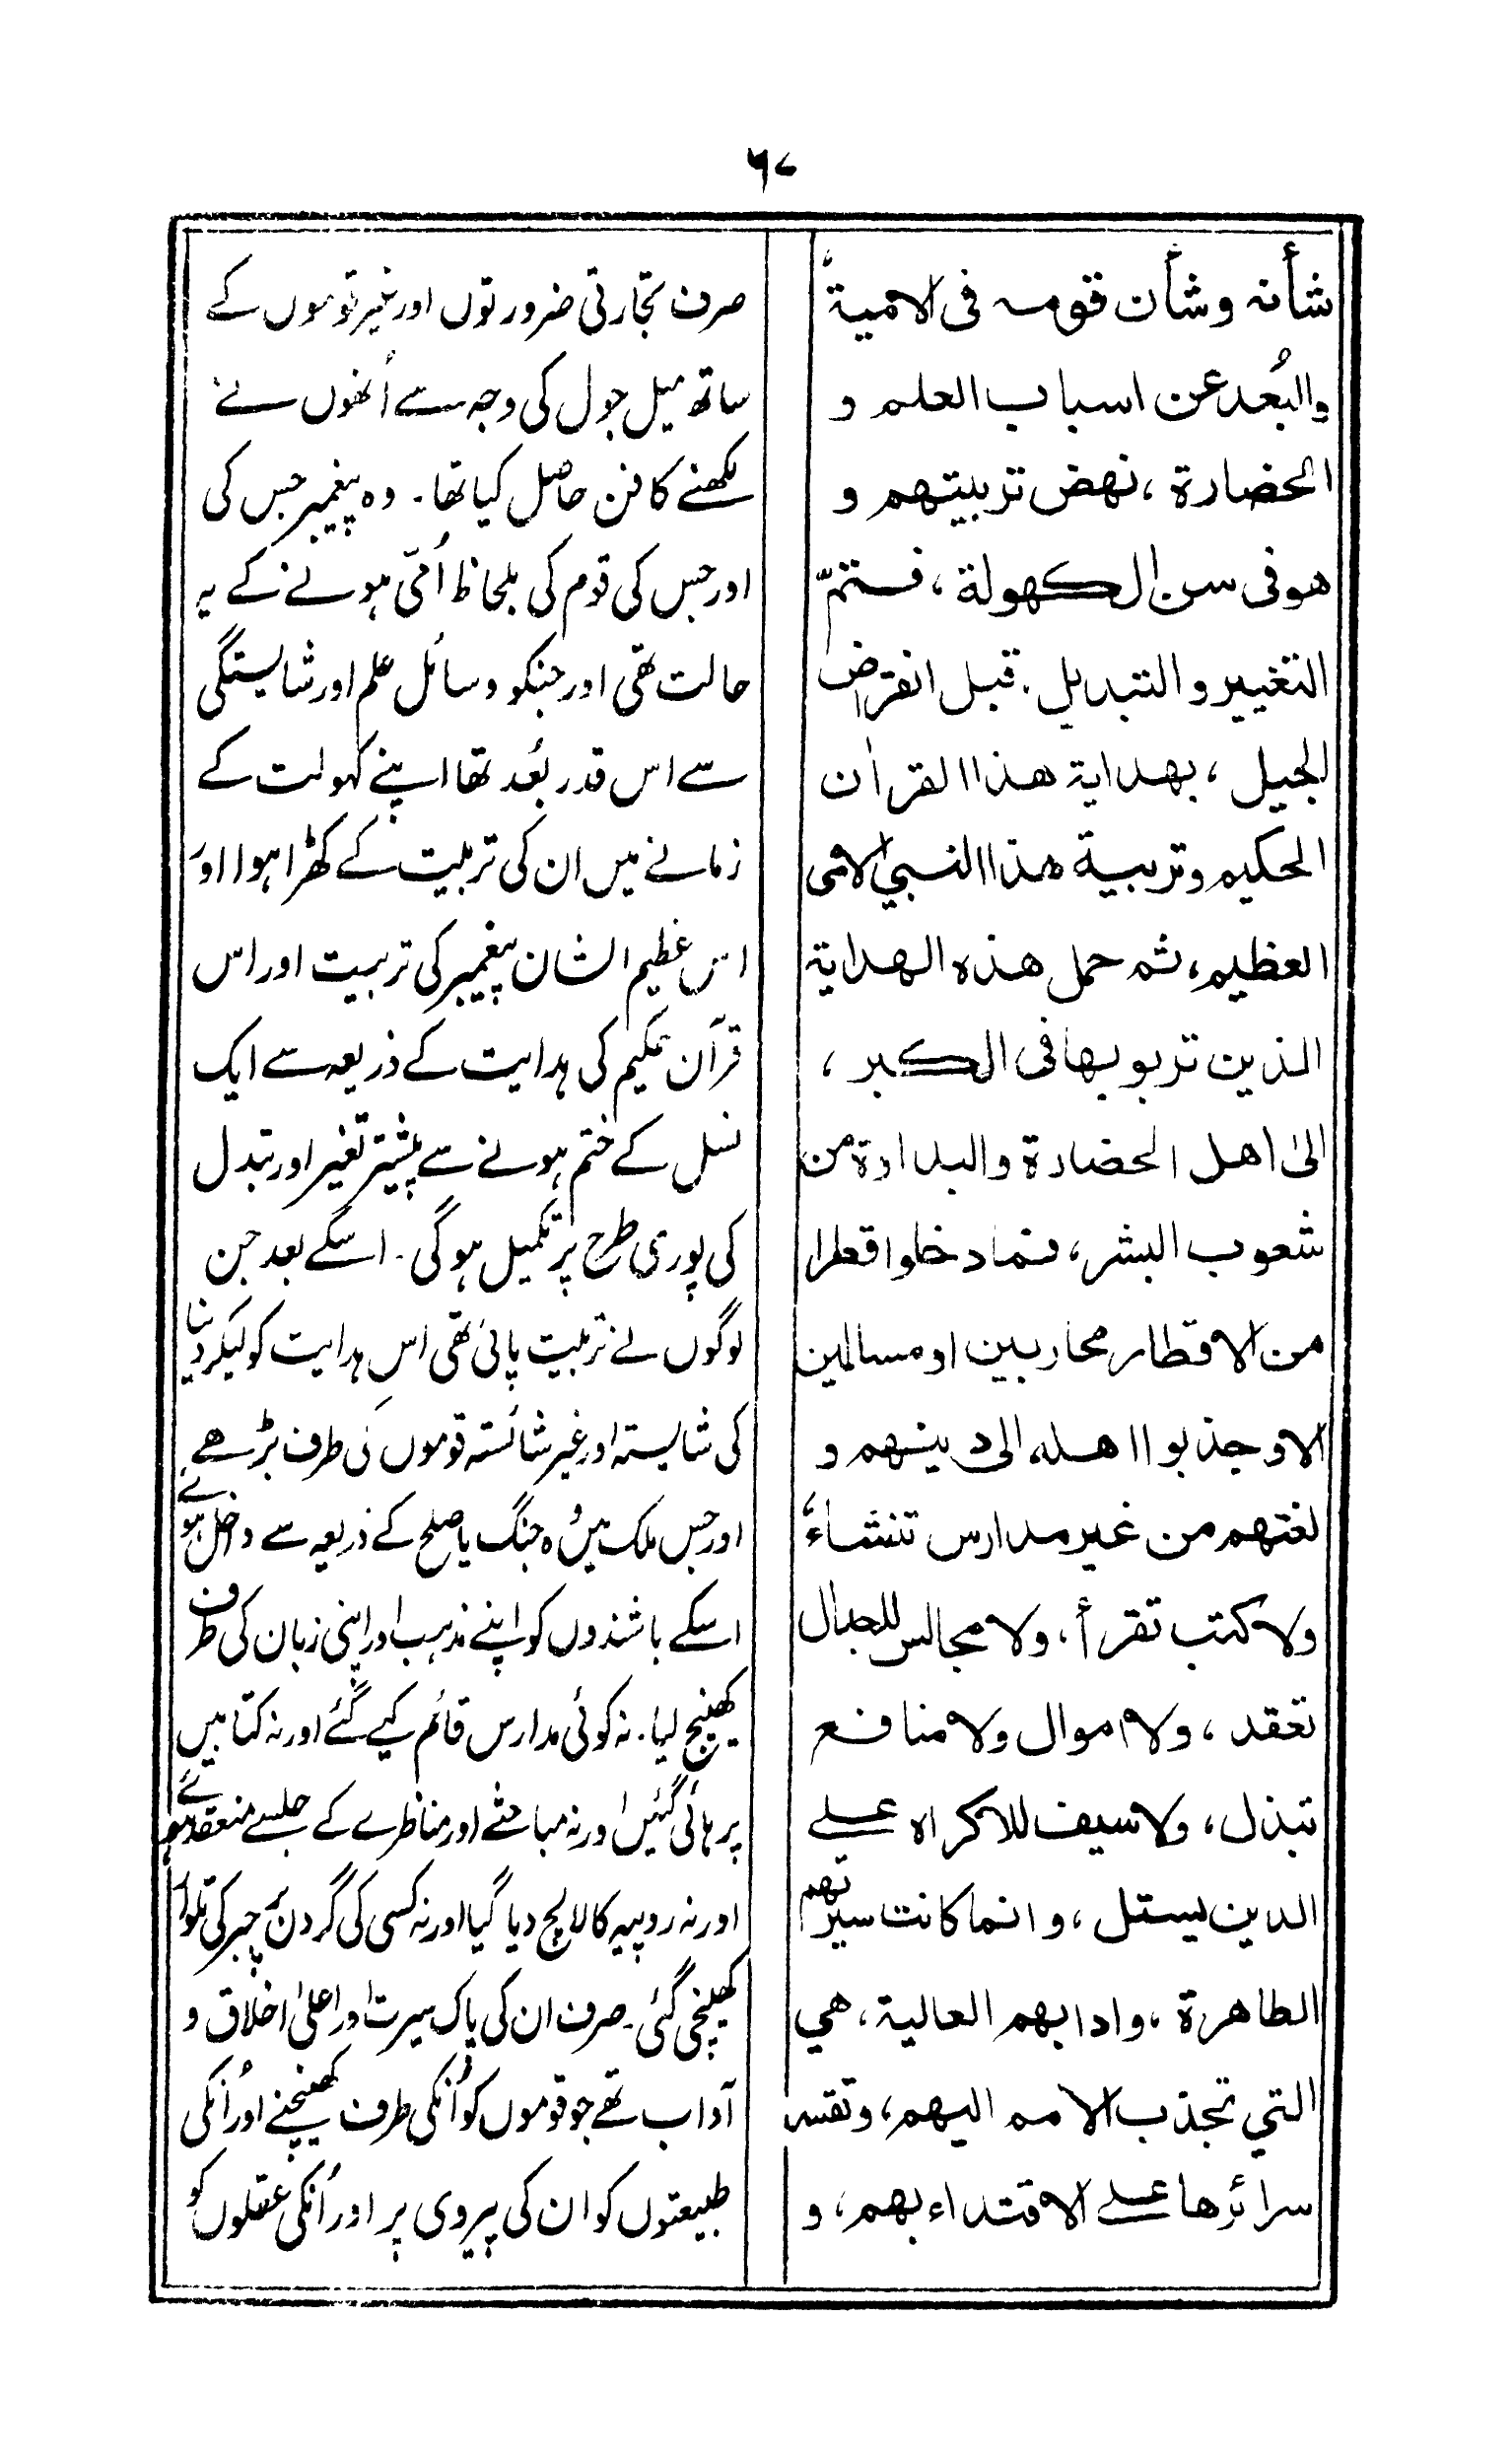 ۶۷
شأنہ وشأن قومہ فی الامیۃ
والبُعد عن اسباب العلم و
الحضارۃ، نھض تربیتھم و
ھو فی سن الکھولۃ، فستتمّ
التغییر والتبدیل. قبل انقراض
الجیل، بھدایۃ ھذا القراٰن
الحکیم وتربیۃ ھذا النبي الامی
العظیم، ثم حمل ھذہ الھدایۃ
الذین تربو بھا فی الکبر،
الیٰ اھل الحضارۃ والبداوۃ من
شعوب البشر، فما دخلوا قطرا
من الاقطار محاربین او مسالمین
الا وجذبوا اھلہ الی دینھم و
لغتھم من غیر مدارس تنشاء،
ولا کتب تقرأ، ولا مجالس للجدال
تعقد، ولا اموال ولا منافع
تبذل، ولا سیف للاکراہ علے
الدین یستل، وانما کانت سیرتھم
الطاھرۃ، وادابھم العالیۃ، ھي
التي تجذب الامم الیھم، وتقسر
سرائرھا علے الاقتداء بھم، و
صرف تجارتی ضرورتوں اور غیر قوموں کے
ساتھ میل جول کی وجہ سے اُنھوں نے
لکھنے کا فن حاصل کیا تھا۔ وہ پیغمبر جس کی
اور جس کی قوم کی بلحاظ اُمّی ہونے کے یہ
حالت تھی اور جنکو وسائل علم اور شایستگی
سے اس قدر بُعد تھا اپنے کہولت کے
زمانے میں ان کی تربیت کے کھڑا ہوا اور
اس عظیم الشان پیغمبر کی تربیت اور اس
قرآن حکیم کی ہدایت کے ذریعہ سے ایک
نسل کے ختم ہونے سے پیشتر تغیر اور تبدل
کی پوری طرح پر تکمیل ہوگی۔ اسکے بعد جن
لوگوں نے تربیت پائی تھی اس ہدایت کو لیکر دنیا
کی شایستہ اور غیر شائستہ قوموں کی طرف بڑھے
اور جس ملک میں وہ جنگ یا صلح کے ذریعہ سے داخل ہوئے
اسکے باشندوں کو اپنے مذہب اور اپنی زبان کی طرف
کھینچ لیا۔ نہ کوئی مدارس قائم کیے گئے اور نہ کتابیں
پڑہائی گئیں اور نہ مباحثے اور مناظرے کے جلسے منعقد ہوئے
اور نہ روپیہ کا لالچ دیا گیا اور نہ کسی کی گردن پر جبر کی تلوار
کھینچی گئی۔ صرف ان کی پاک سیرت اور اعلیٰ اخلاق و
آداب تھے جو قوموں کو اُنکی طرف کھینچنے اور اُنکی
طبیعتوں کو ان کی پیروی پر اور اُنکی عقلوں کو